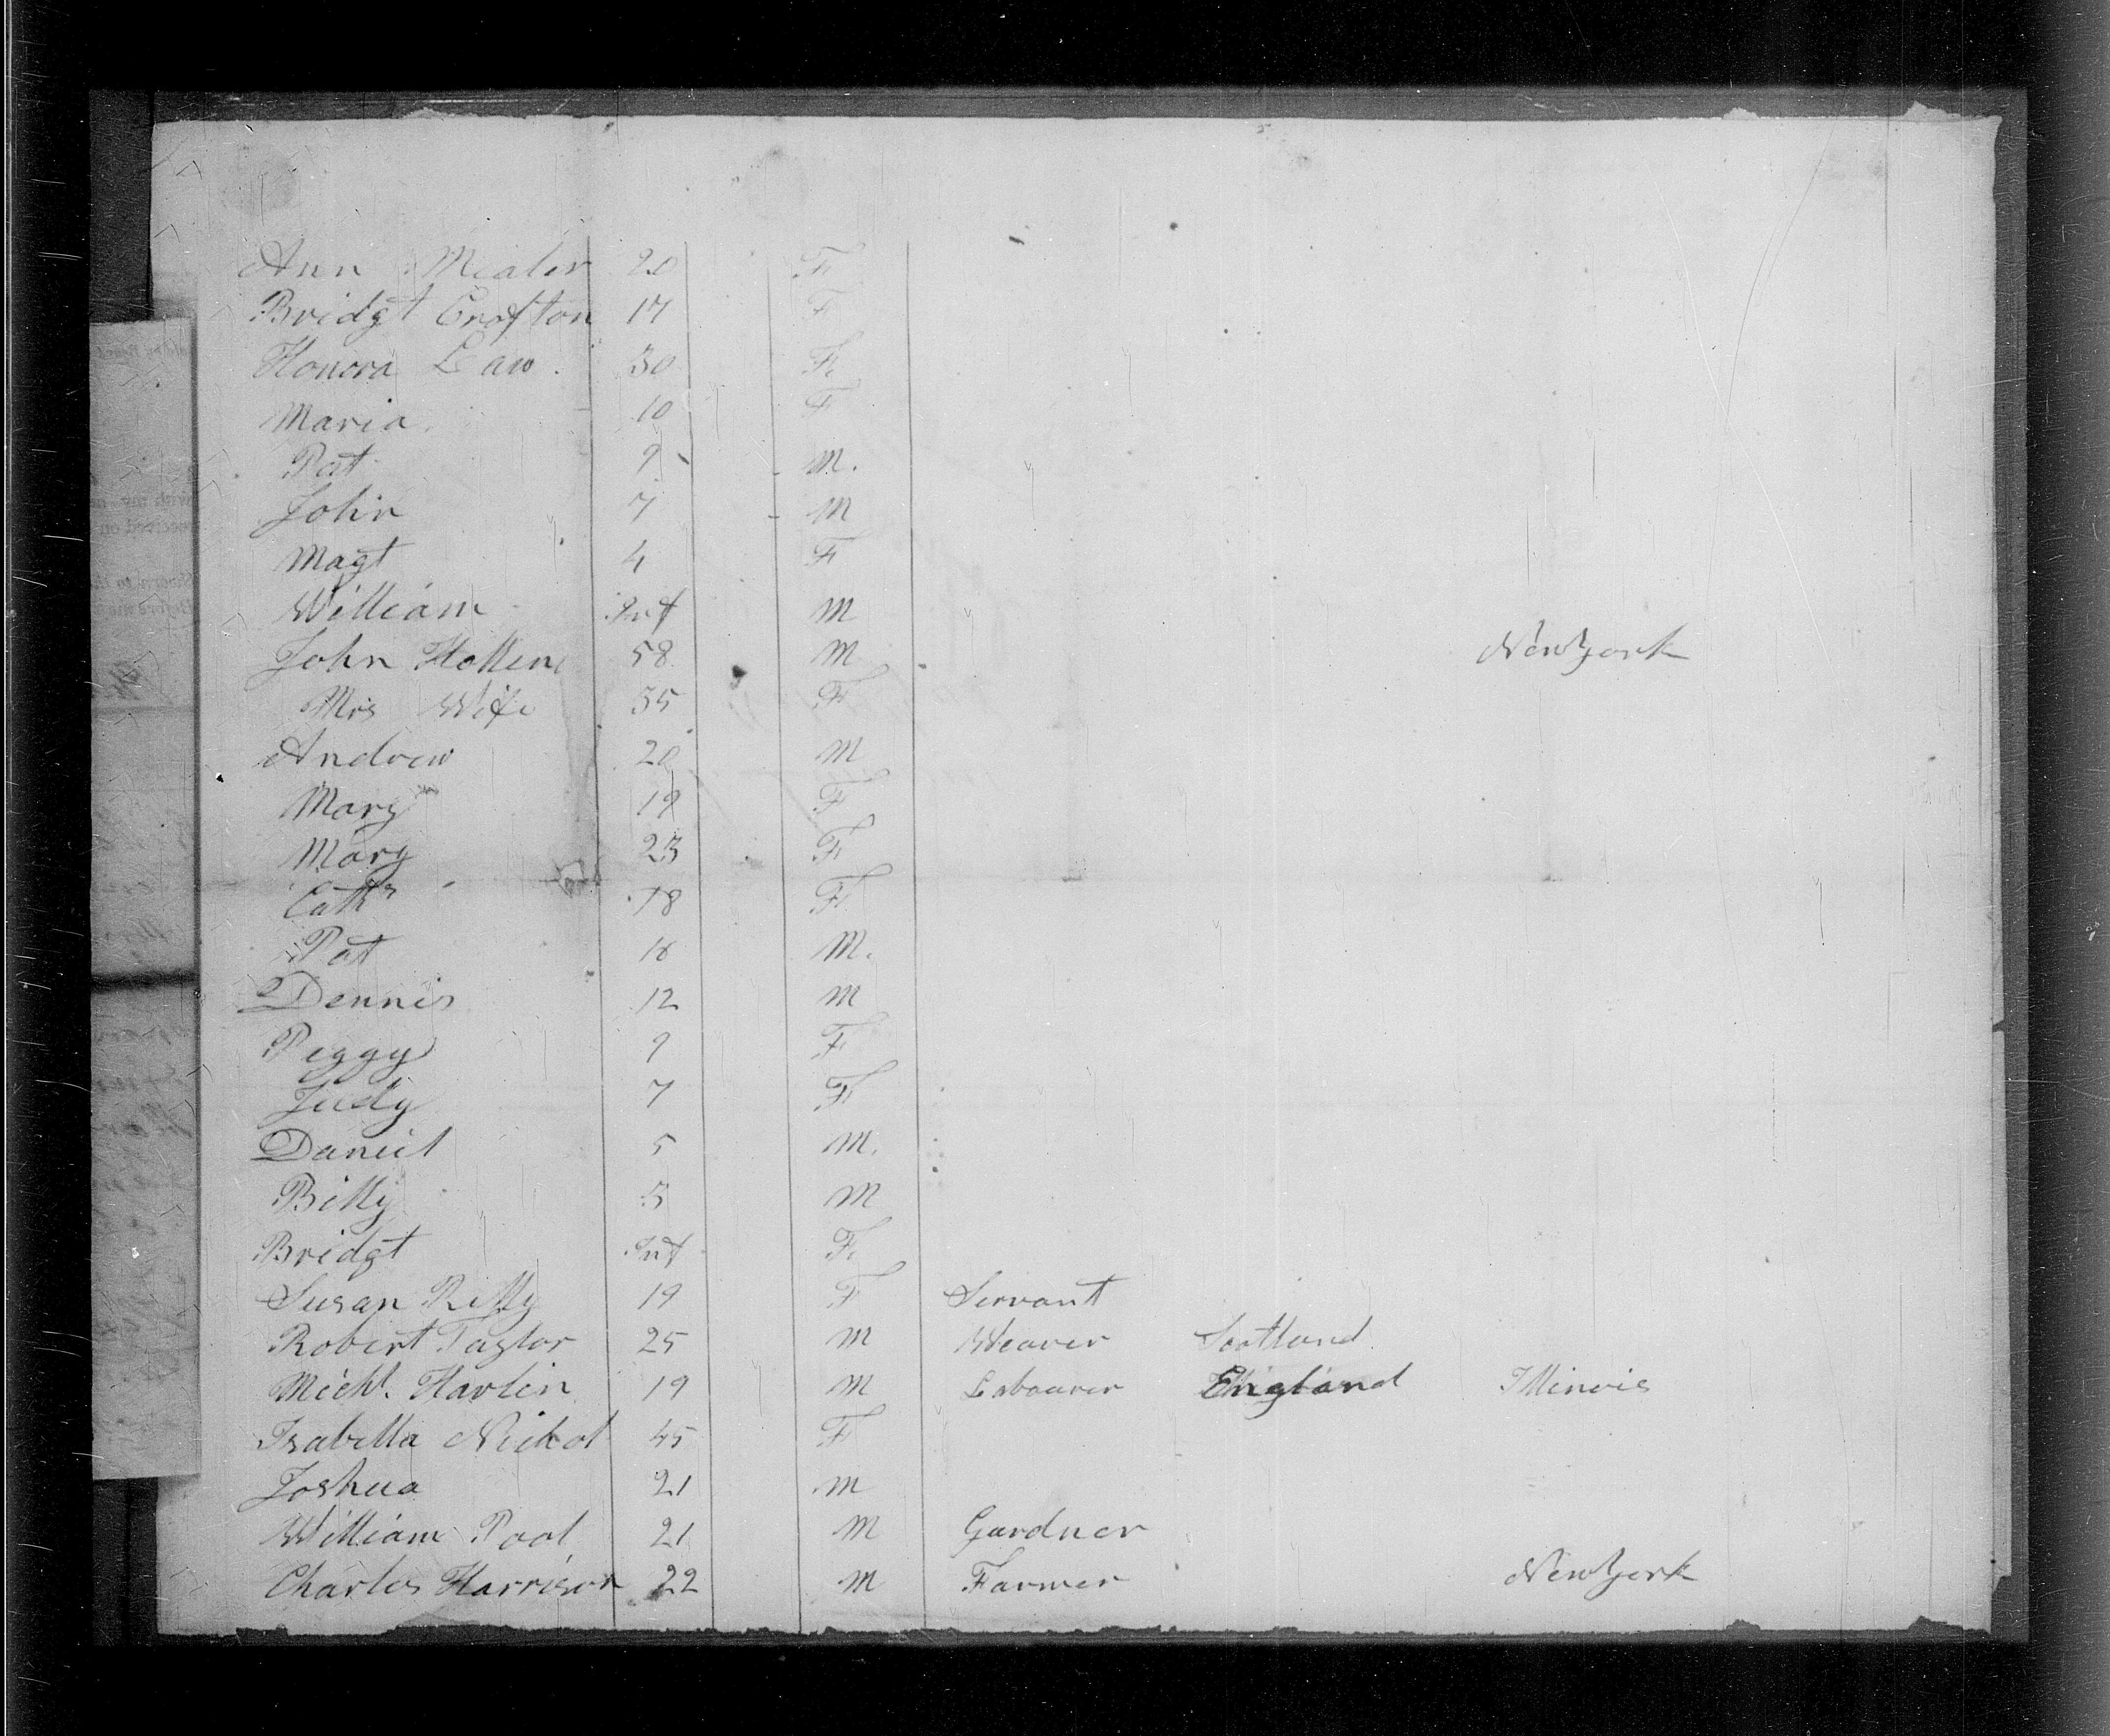 Ann Mealer 20 F
Bridgt Crofton 17 F
Honora Law 30 F
Maria 10 F
Pat 9 M.
John 7 M
Magt 4 F
William Inf M
John Hollen 58 M New York
Mrs Wife 35 F
Andrew 20 M
Mary 19 F
Mary 23 F
Cath 18 F
Pat M.
Dennis 12 M
Peggy 9 F
Judy 7 F
Daniel 5 M.
Billy 3 M
Bridgt Inf F
Susan Rilly 19 F Servant
Robert Taylor 25 M Weaver Scotland
Michl. Harlin 19 M Labourer England Illinois
Isabella Nickol 45 F
Joshua 21 M
William Pool 21 M Gardner
Charles Harrison 22 M Farmer New York